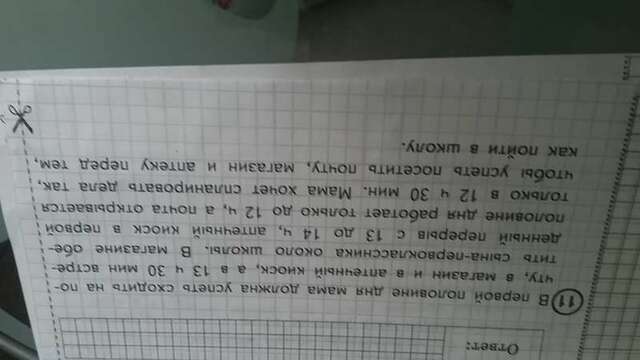 Ответ:
11 В первой половине дня мама должна успеть сходить на по-
чту, в магазин и в аптечный киоск, а в 13 ч 30 мин встре-
тить сына-первоклассника около школы. В магазине обе-
денный перерыв с 13 до 14 ч, аптечный киоск в первой
половине дня работает только до 12 ч, а почта открывается
только в 12 ч 30 мин. Мама хочет спланировать дела так,
чтобы успеть посетить почту, магазин и аптеку перед тем,
как пойти в школу.